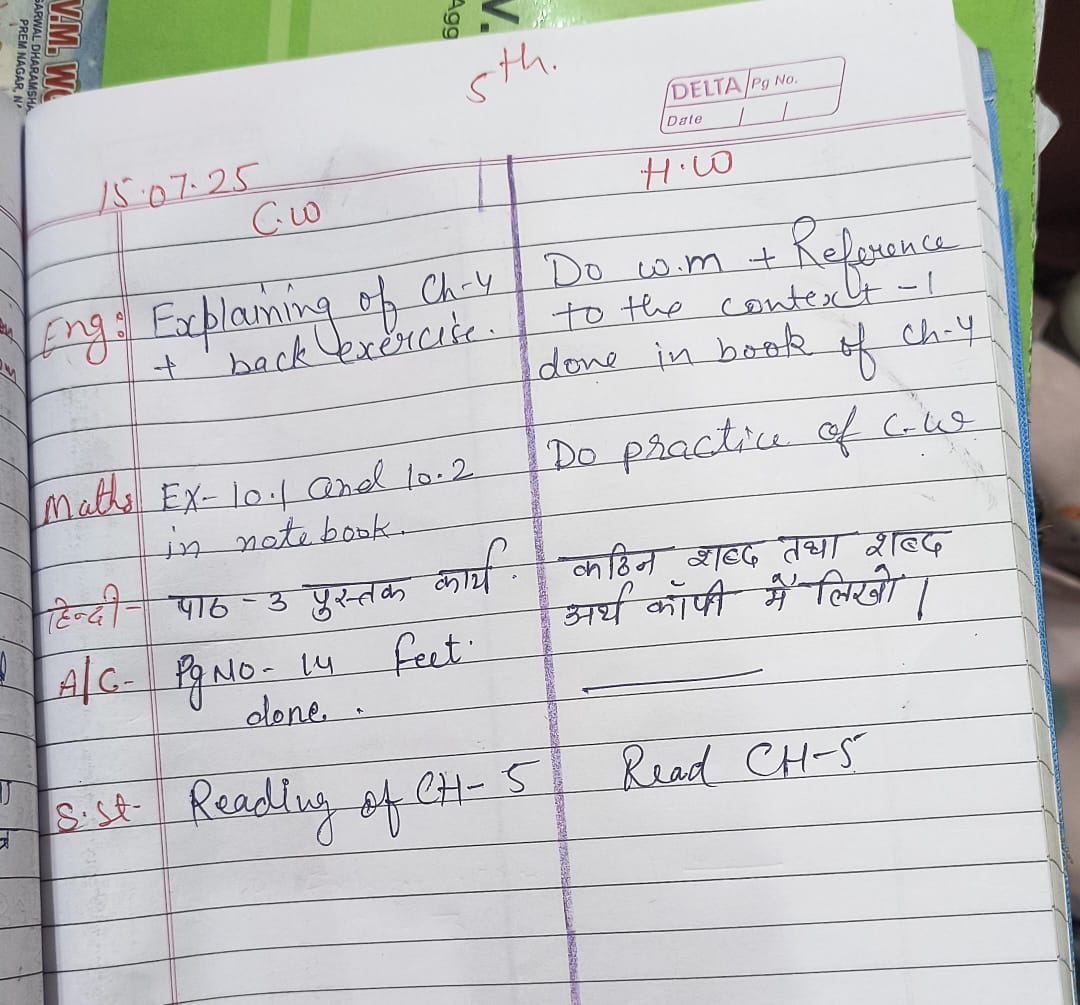 V.M. 
GARWAL DHARAMSHA
PREM NAGAR, N
Agg
V.
5th.
DELTA Pg No.
Date / /
15.07.25
C.W
H.W
Eng: Explaining of Ch-4
+ back exercise.
Do w.m + Reference
to the context -1
done in book of Ch-4
Maths Ex-10.1 and 10.2
in notebook.
Do practice of C.W
हिन्दी- पाठ -3 पुस्तक कार्य.
कठिन शब्द तथा शब्द
अर्थ कॉपी में लिखो।
A/C- Pg No- 14 feet.
done.
S.St- Reading of CH-5
Read CH-5